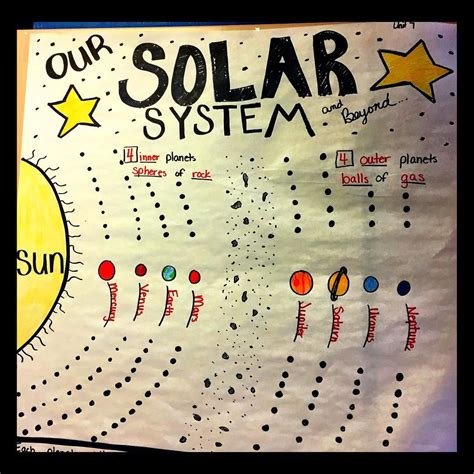 Unit 4
OUR
SOLAR
SYSTEM
and
Beyond...
4 inner planets
spheres of rock
4 outer planets
balls of gas
Sun
Mercury
Venus
Earth
Mars
Jupiter
Saturn
Uranus
Neptune
Each